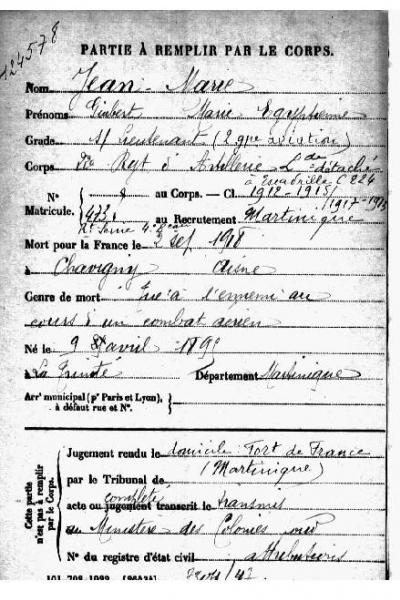 124578
PARTIE À REMPLIR PAR LE CORPS.
Nom Jean-Marie
Prénoms Gilbert Marie Egyptienne
Grade S/Lieutenant (2 gpe aviation)
Corps Rgt d'Artillerie Lde détaché
à Escadrille C 224
N° au Corps. — Cl. 1912-1915/
1917-1918
Matricule. au Recrutement Martinique
Mort pour la France le 2 sep 1918
à Chavigny Aisne
Genre de mort Tué à l'ennemi au
cours d'un combat aérien
Né le 9 avril
à La Trinité Département Martinique
Arrt municipal (pr Paris et Lyon),
à défaut rue et N°.
Cette partie
n'est pas à remplir
par le Corps.
Jugement rendu le domicile Fort de France
(Martinique)
par le Tribunal de
complété
acte ou jugement transcrit le transmis
au Ministère des Colonies
N° du registre d'état civil attributions